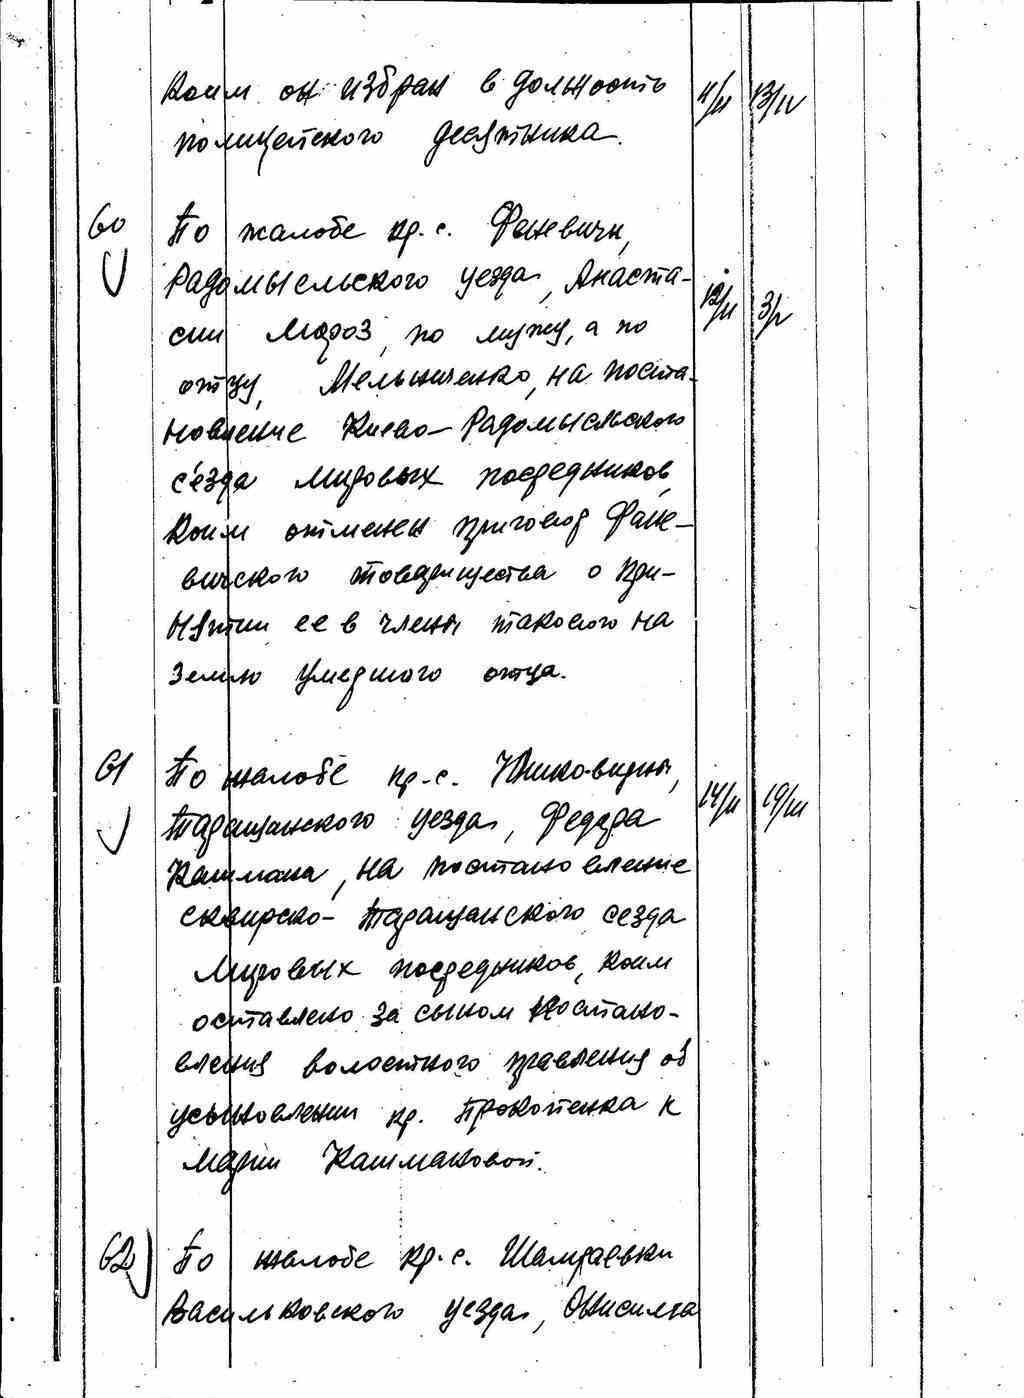 коим он избран в должность 11/II 13/IV
полицейского десятника.
60 По жалобе кр. с. Фаневичи,
Радомысельского уезда, Анаста- 12/II 3/V
сии Мороз, по мужу, а по
отцу, Мельниченко, на поста-
новление Киево-Радомысльского
с'езда мировых посредников,
коим отменен приговор Фане-
вичского товарищества о при-
нятии ее в члены такового на
землю умершого отца.
61 По жалобе кр. с.
Таращанского уезда, Федора 14/II 19/III
Кашмана, на постановление
сквирско-Таращанского сезда
Мировых посредников, коим
оставлено за сыном постано-
вления волостного правления об
усыновлении кр. Прокопенка к
Марии Кашмановой.
62 По жалобе кр. с. Шамраевки
Васильковского уезда, Онисима